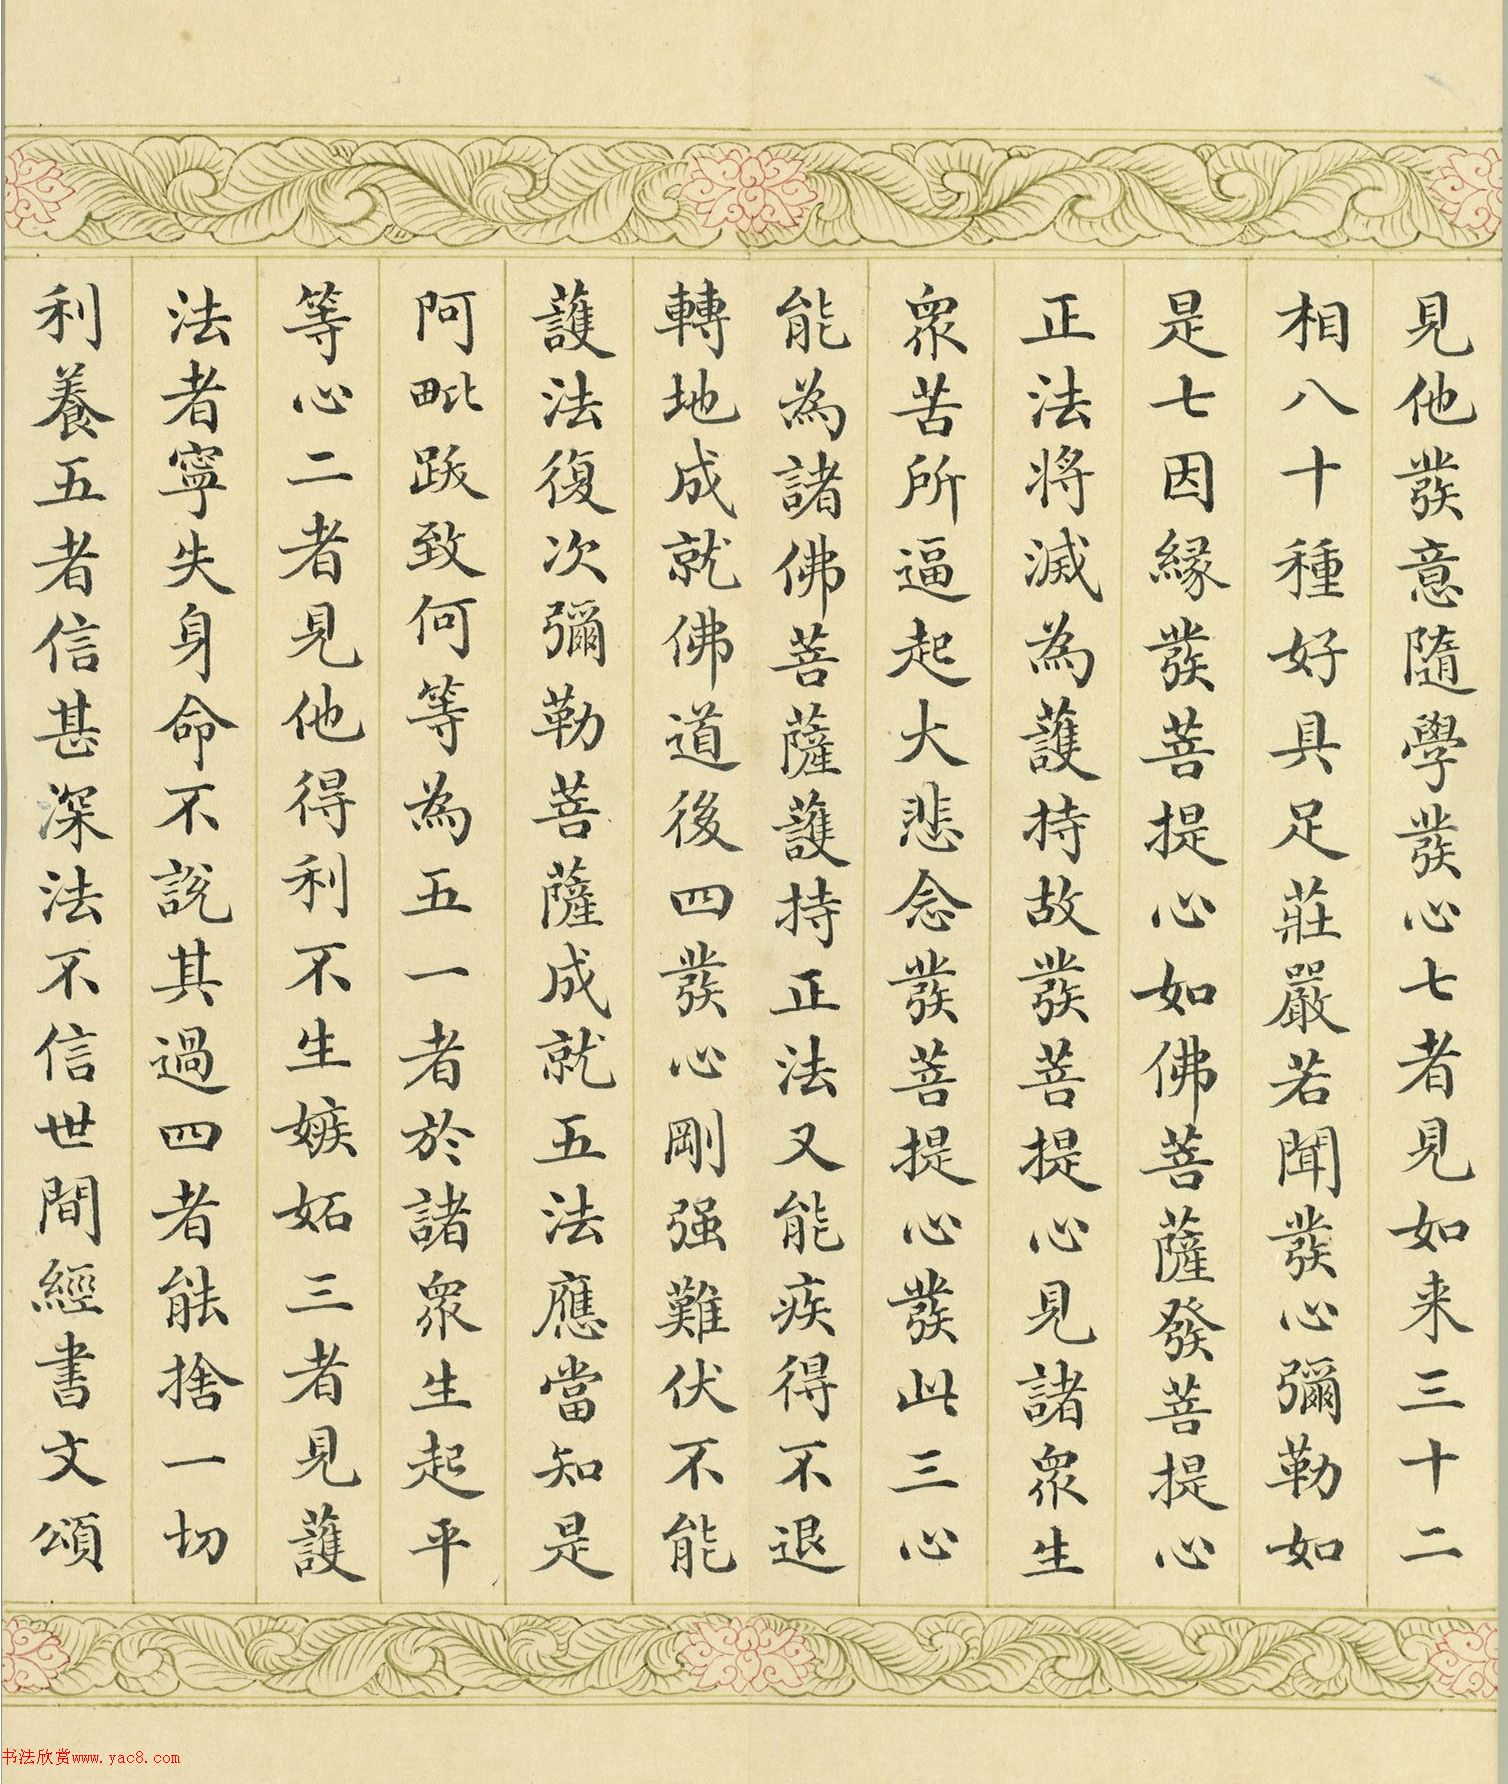 見他發意隨學發心七者見如来三十二
相八十種好具足莊嚴若聞發心彌勒如
是七因縁發菩提心如佛菩薩發菩提心
正法将滅為護持故發菩提心見諸衆生
衆苦所逼起大悲念發菩提心發此三心
能為諸佛菩薩護持正法又能疾得不退
轉地成就佛道後四發心剛强難伏不能
護法復次彌勒菩薩成就五法應當知是
阿毗跋致何等為五一者於諸衆生起平
等心二者見他得利不生嫉妬三者見護
法者寧失身命不說其過四者能捨一切
利養五者信甚深法不信世間經書文頌
书法欣赏www.yac8.com